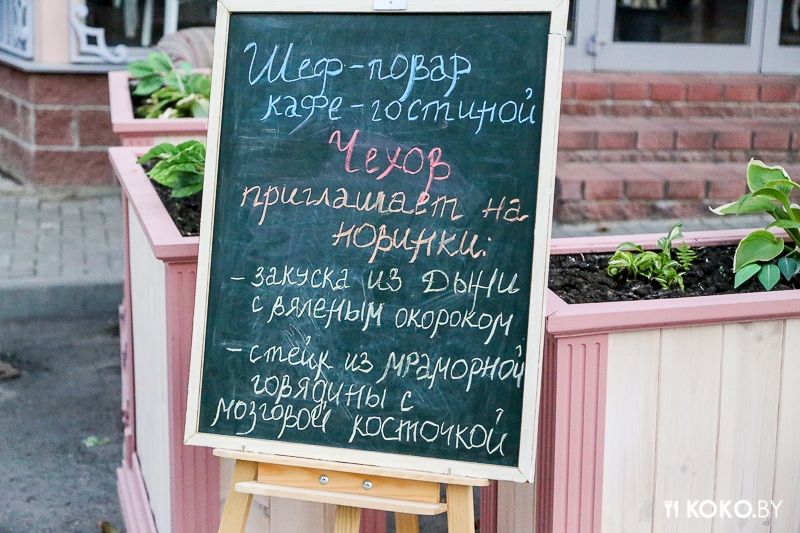 Шеф-повар
кафе-гостиной
Чехов
приглашает на
новинки:
- закуска из дыни
с вяленым окороком
- стейк из мраморной
говядины с
мозговой косточкой
KOKO.BY